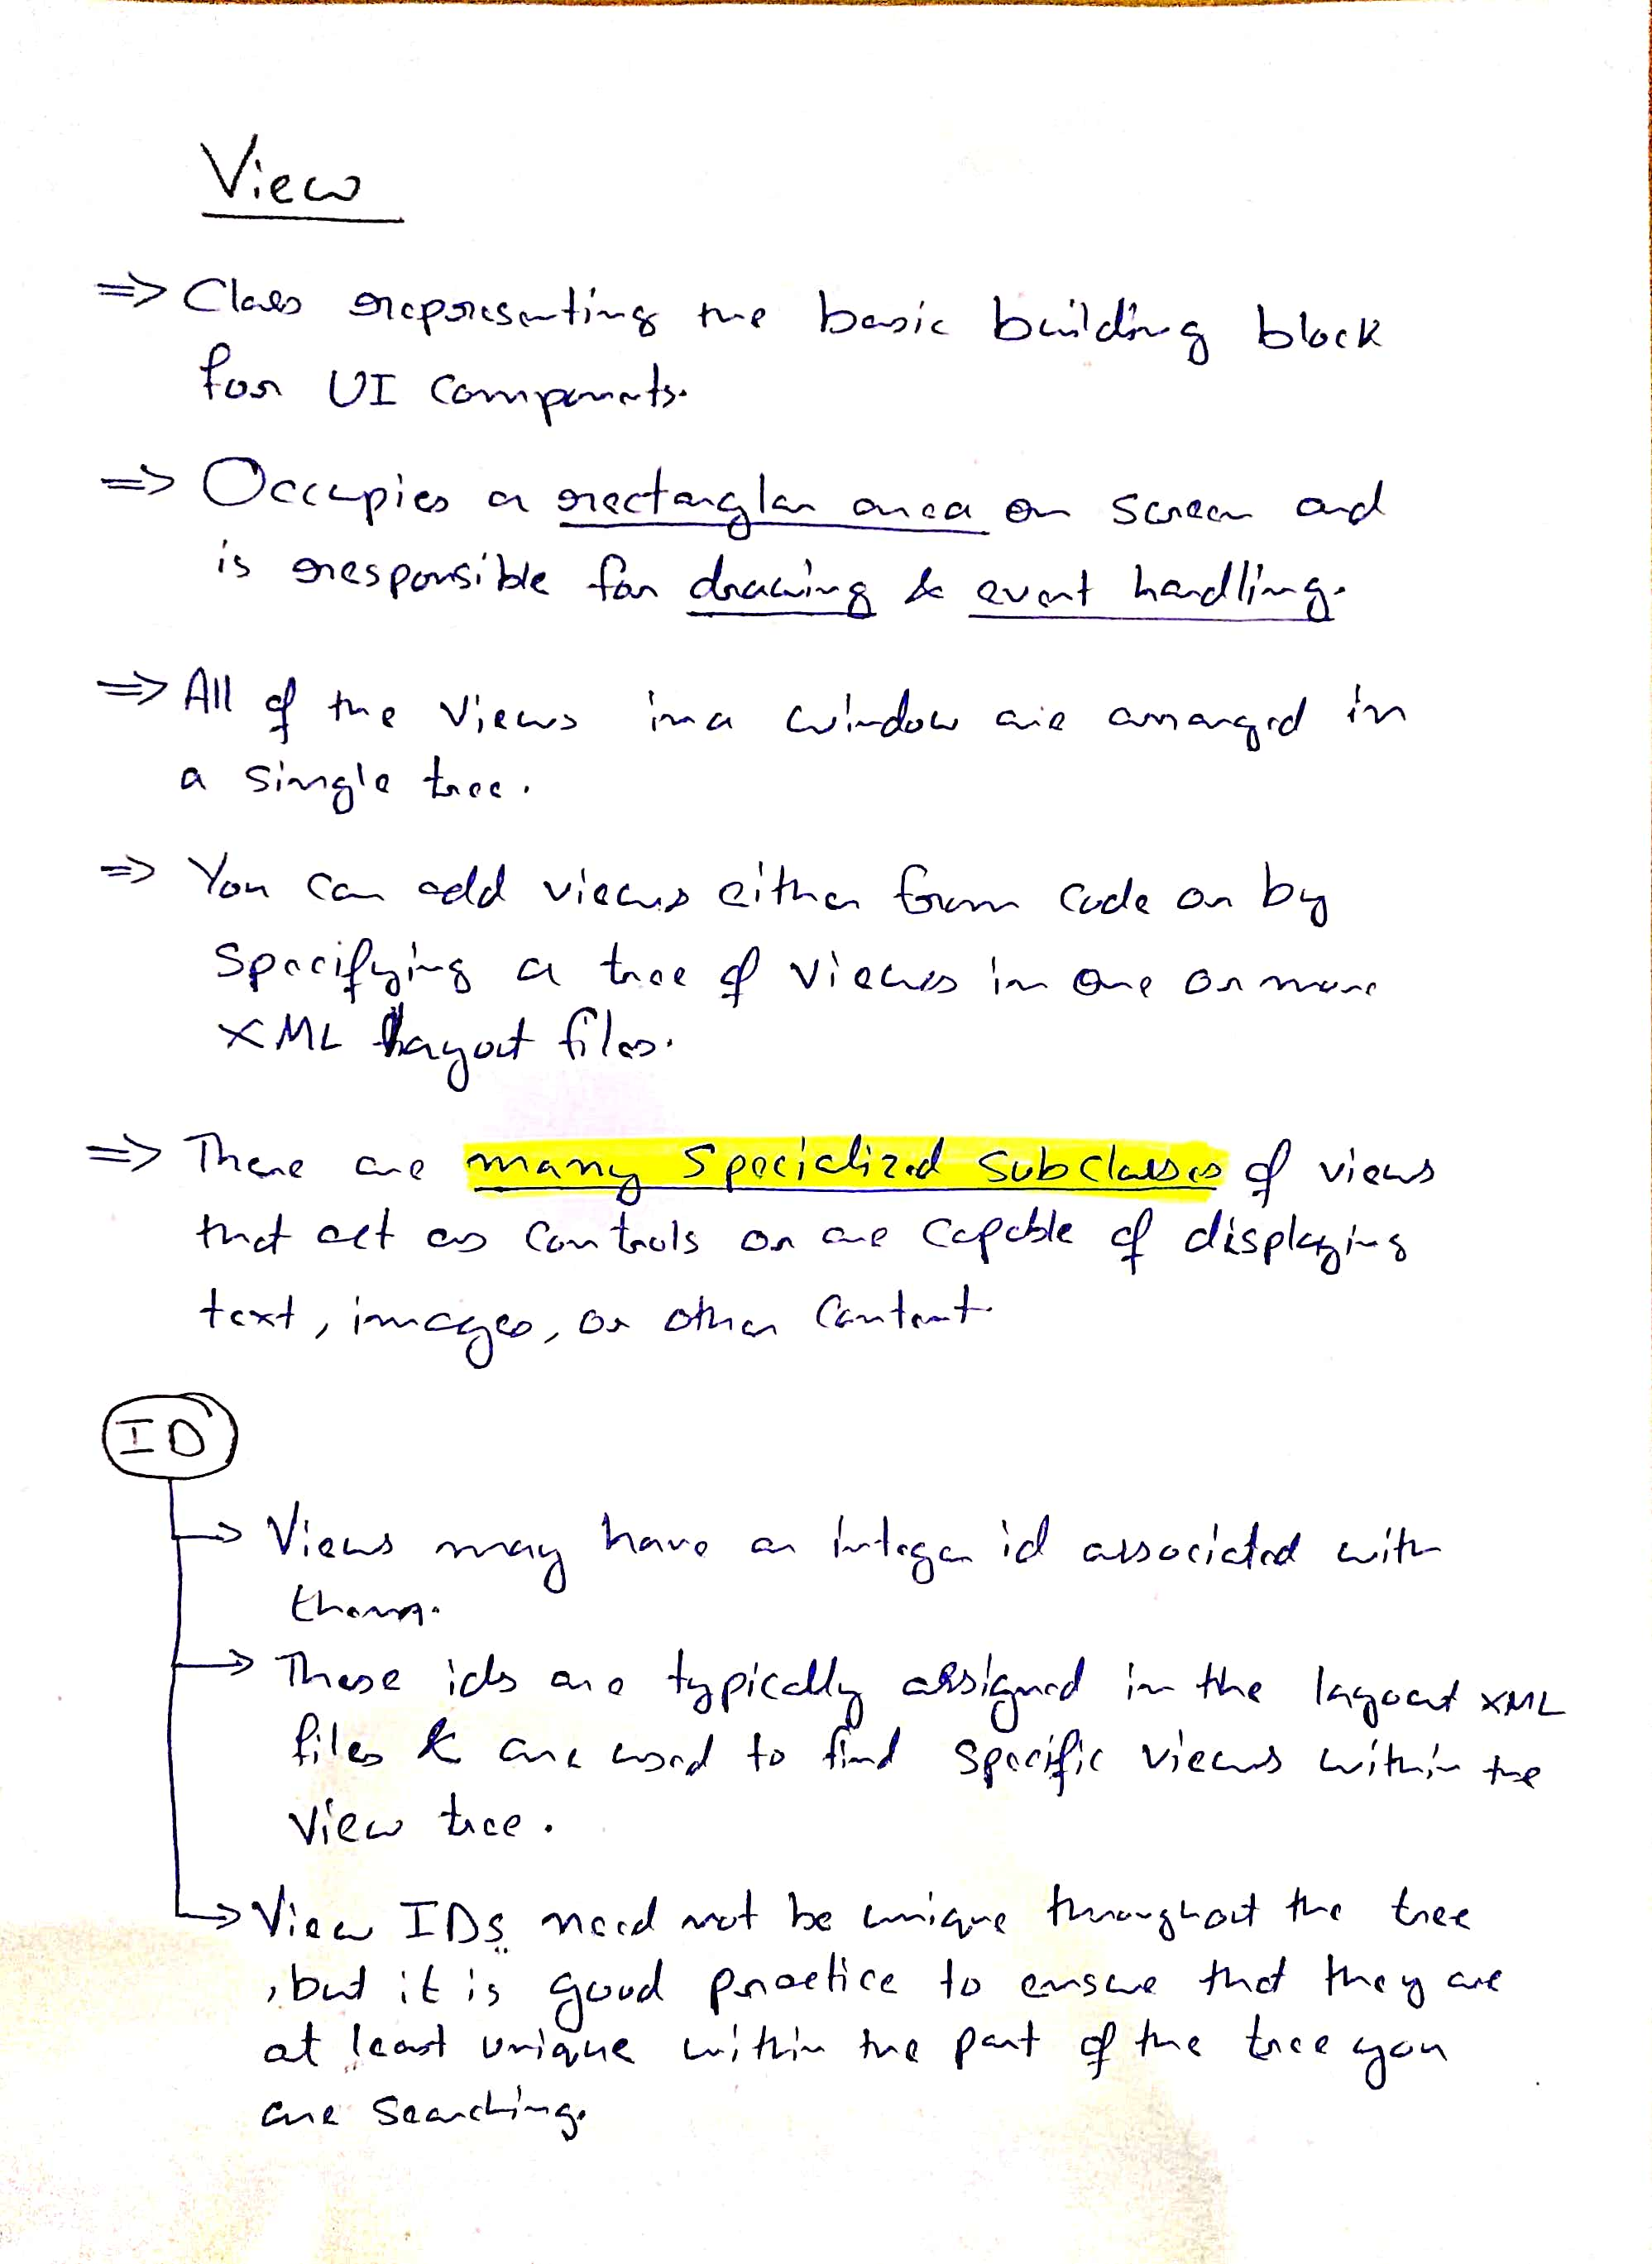 View
=> Class representing the basic building block
for UI components.
=> Occupies a rectanglar area on screen and
is responsible for drawing & event handling.
=> All of the views in a window are arranged in
a single tree.
=> You can add views either from code or by
specifying a tree of views in one or more
XML layout files.
=> There are many specialized subclasses of views
that act as controls or are capable of displaying
text, images, or other content.
ID
→ Views may have an integer id associated with
them.
→ These ids are typically assigned in the layout XML
files & are used to find specific views within the
view tree.
→ View IDs need not be unique throughout the tree
, but it is good practice to ensure that they are
at least unique within the part of the tree you
are searching.